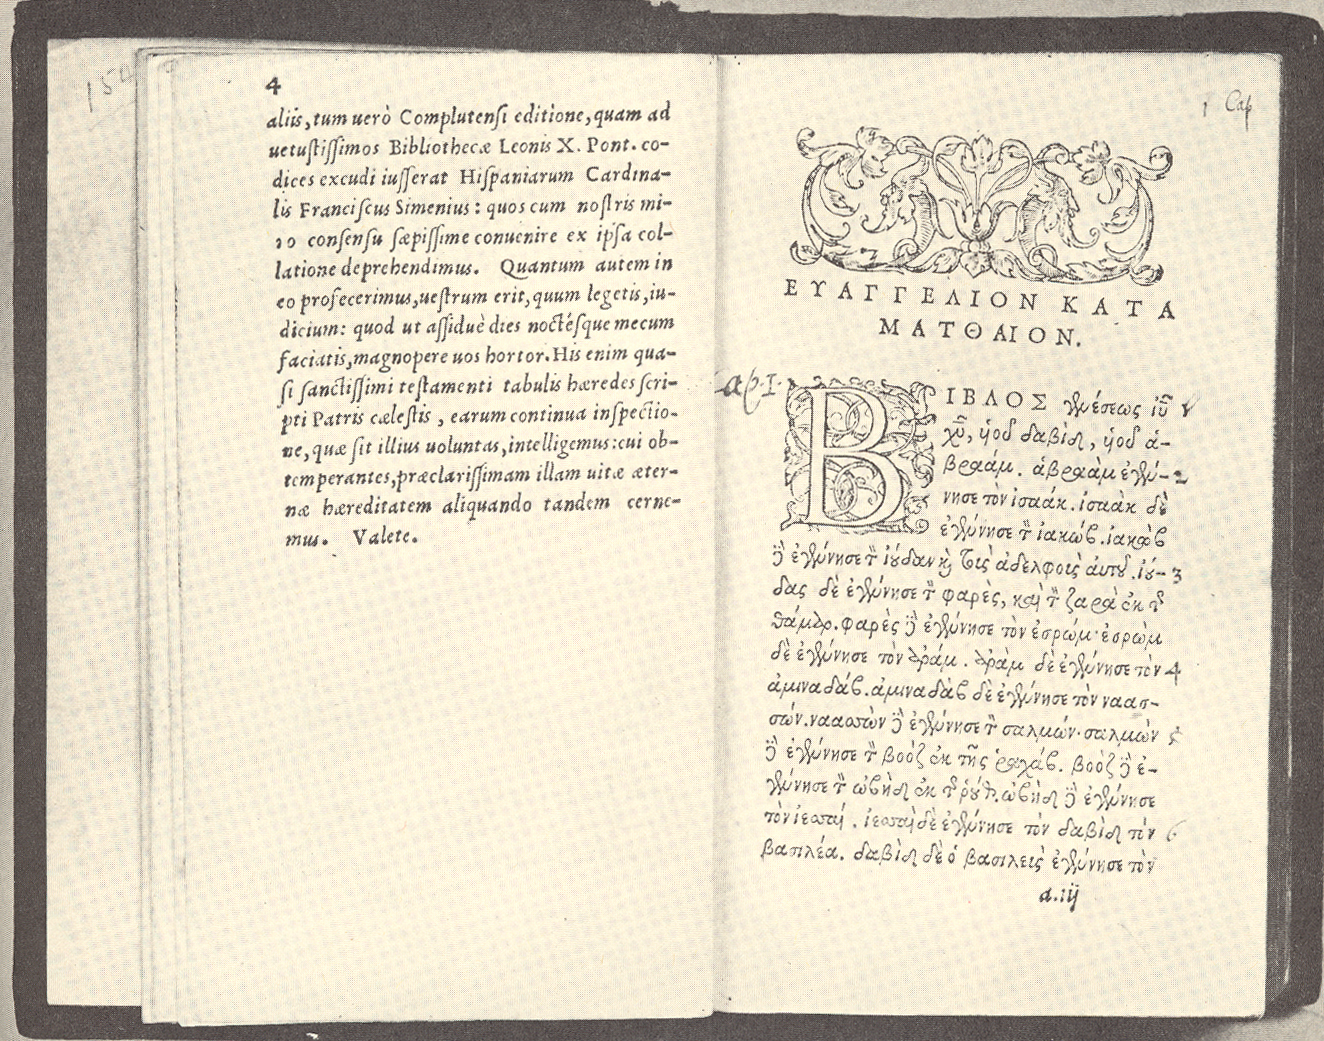 154
4
aliis, tum uerò Complutensi editione, quam ad
uetustissimos Bibliothecæ Leonis X. Pont. co-
dices excudi iusserat Hispaniarum Cardina-
lis Franciscus Simenius: quos cum nostris mi-
ro consensu sæpissime conuenire ex ipsa col-
latione deprehendimus. Quantum autem in
eo profecerimus, uestrum erit, quum legetis, iu-
dicium: quod ut assiduè dies noctésque mecum
faciatis, magnopere uos hortor. His enim qua-
si sanctissimi testamenti tabulis hæredes scri-
pti Patris cælestis, earum continua inspectio-
ne, quæ sit illius uoluntas, intelligemus: cui ob-
temperantes, præclarissimam illam uitæ æter-
næ hæreditatem aliquando tandem cerne-
mus. Valete.
1 Cap
ΕΥΑΓΓΕΛΙΟΝ ΚΑΤΑ
ΜΑΤΘΑΙΟΝ.
ap. I.
ΒΙΒΛΟΣ γενέσεως ἰῦ
χῦ, ὑοῦ δαβὶδ, ὑοῦ ἀ-
βραάμ. ἀβραὰμ ἐγέν- 2
νησε τὸν ἰσαάκ. ἰσαὰκ δὲ
ἐγέννησε τὸν ἰακώβ. ἰακὼβ
δὲ ἐγέννησε τὸν ἰούδαν καὶ τοὺς ἀδελφοὺς αὐτοῦ. ἰού- 3
δας δὲ ἐγέννησε τὸν φαρὲς, καὶ τὸν ζαρὰ ἐκ τῆς
θάμαρ. φαρὲς δὲ ἐγέννησε τὸν ἐσρώμ· ἐσρὼμ
δὲ ἐγέννησε τὸν ἀράμ. ἀρὰμ δὲ ἐγέννησε τὸν 4
ἀμιναδάβ. ἀμιναδὰβ δὲ ἐγέννησε τὸν ναασ-
σών. ναασσὼν δὲ ἐγέννησε τὸν σαλμών· σαλμὼν 5
δὲ ἐγέννησε τὸν βοὸζ ἐκ τῆς ῥαχάβ. βοὸζ δὲ ἐ-
γέννησε τὸν ὠβὴδ ἐκ τῆς ῥούθ. ὠβὴδ δὲ ἐγέννησε
τὸν ἰεσσαί. ἰεσσαὶ δὲ ἐγέννησε τὸν δαβὶδ τὸν 6
βασιλέα. δαβὶδ δὲ ὁ βασιλεὺς ἐγέννησε τὸν
a.iij